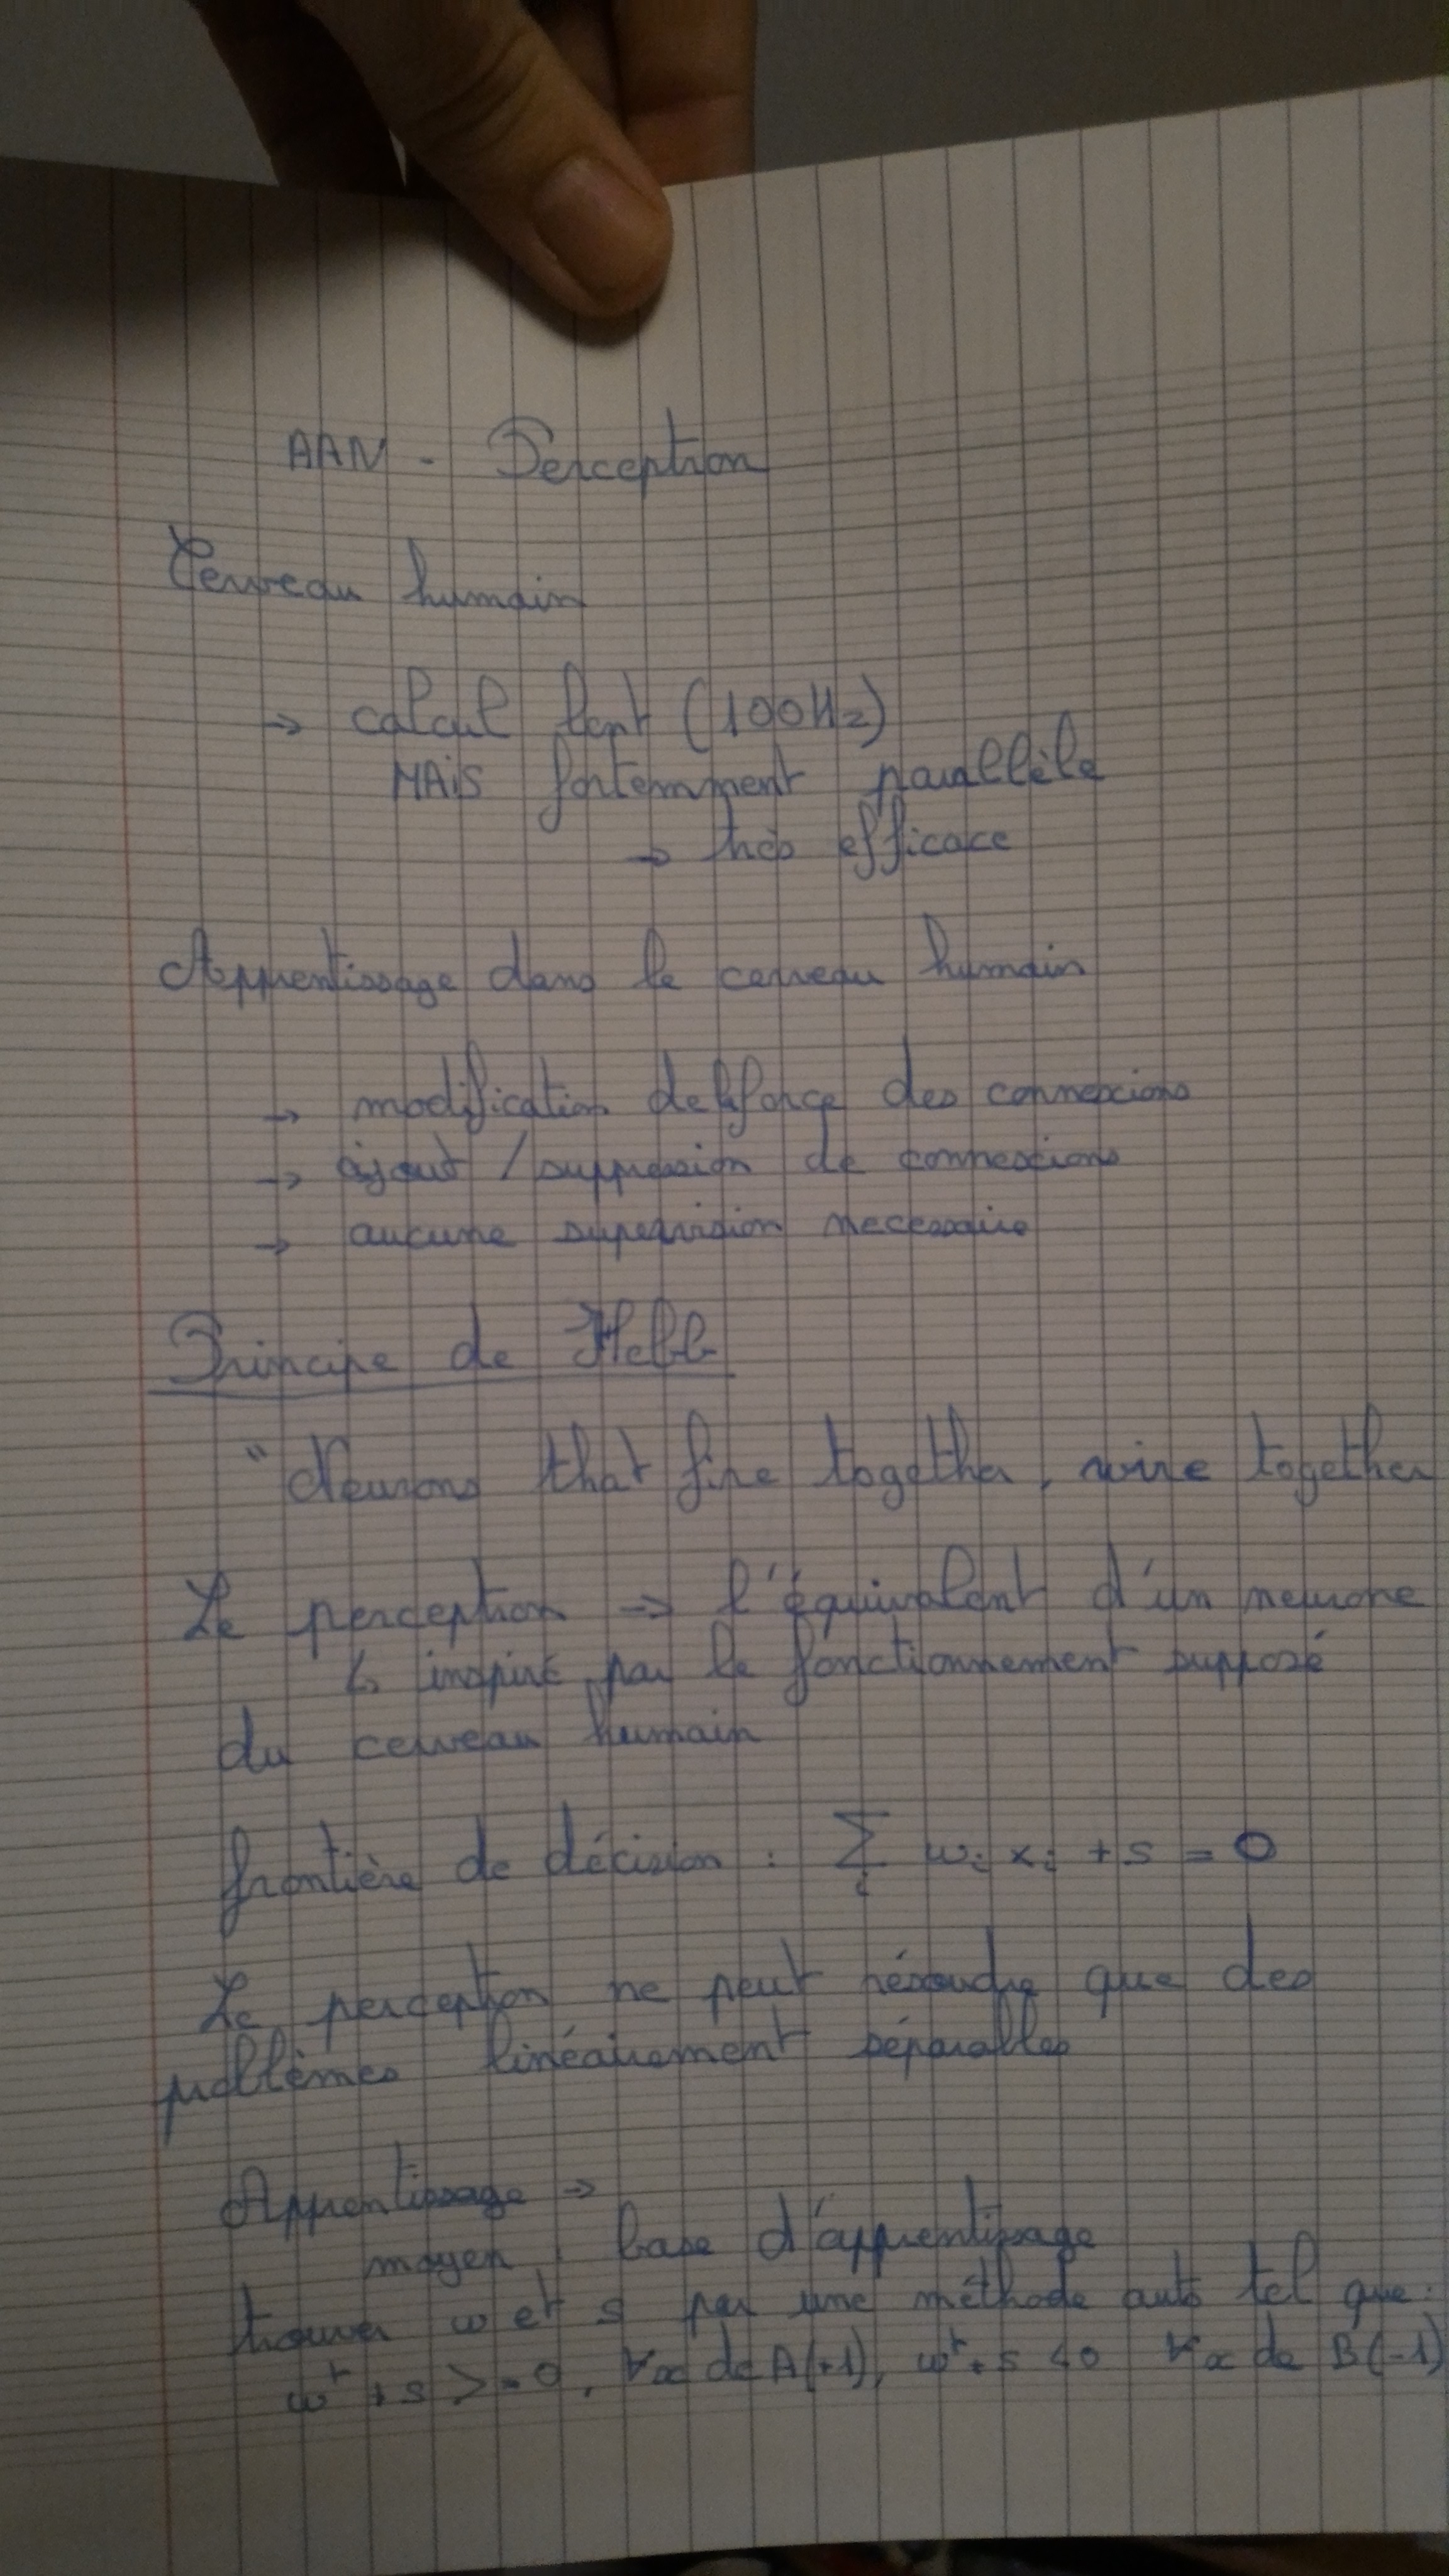 AAN - Perception
Cerveau humain
→ calcul lent (100Hz)
MAIS fortemment parallèle
→ très efficace
Apprentissage dans le cerveau humain
→ modification de la force des connexions
→ ajout / suppression de connexions
→ aucune supervision necessaire
Principe de Hebb
"Neurons that fire together, wire together
Le perceptron → l'équivalent d'un neurone
↳ inspiré par le fonctionnement supposé
du cerveau humain
frontière de décision : ∑ᵢ wᵢ xᵢ + s = 0
Le perceptron ne peut résoudre que des
problèmes linéairement séparables
Apprentissage →
moyen : base d'apprentissage
trouver w et s par une méthode auto tel que :
wᵗ + s >= 0, ∀x de A(+1), wᵗ + s < 0 ∀x de B(-1)